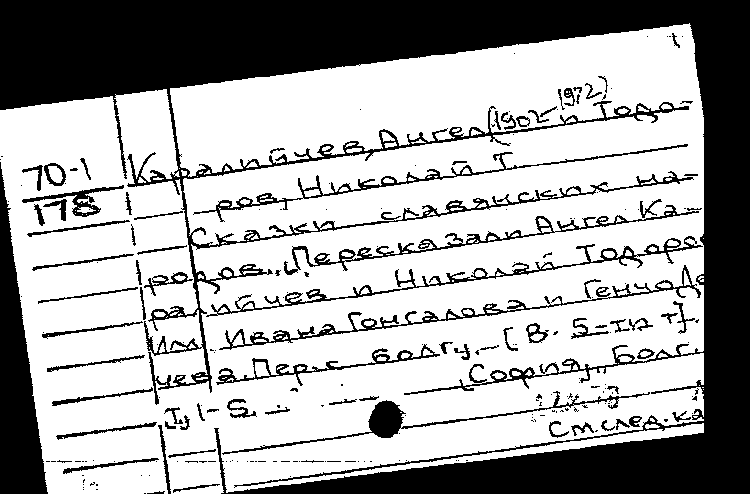 70-1
178
Каралийчев, Ангел (1902-1972) и Тодо-
ров, Николай Т.
Сказки славянских на-
родов... Пересказали Ангел Ка-
ралийчев и Николай Тодоро
Илл. Ивана Гонгалова и Генчо Де
чева. Пер. с болгу. - [В. 5-ти т].
София, Болг.
Т. 1-5. -
См. след. ка